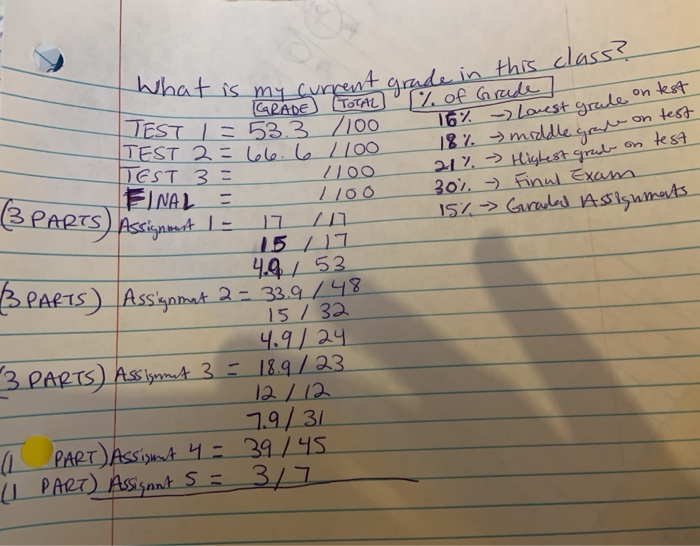 What is my current grade in this class?
GRADE TOTAL % of Grade
TEST 1 = 53.3 /100 16% → Lowest grade on test
TEST 2 = 66.6 /100 18% → middle grade on test
TEST 3 = /100 21% → Highest grade on test
FINAL = /100 30% → Final Exam
(3 PARTS) Assignment 1 = 17 /17 15% → Graded Assignments
15 / 17
4.9 / 53
(3 PARTS) Assignmat 2 = 33.9 / 48
15 / 32
4.9 / 24
(3 PARTS) Assignmet 3 = 18.9 / 23
12 / 12
7.9 / 31
(1 PART) Assignmut 4 = 39 / 45
(1 PART) Assignnt 5 = 3 / 7